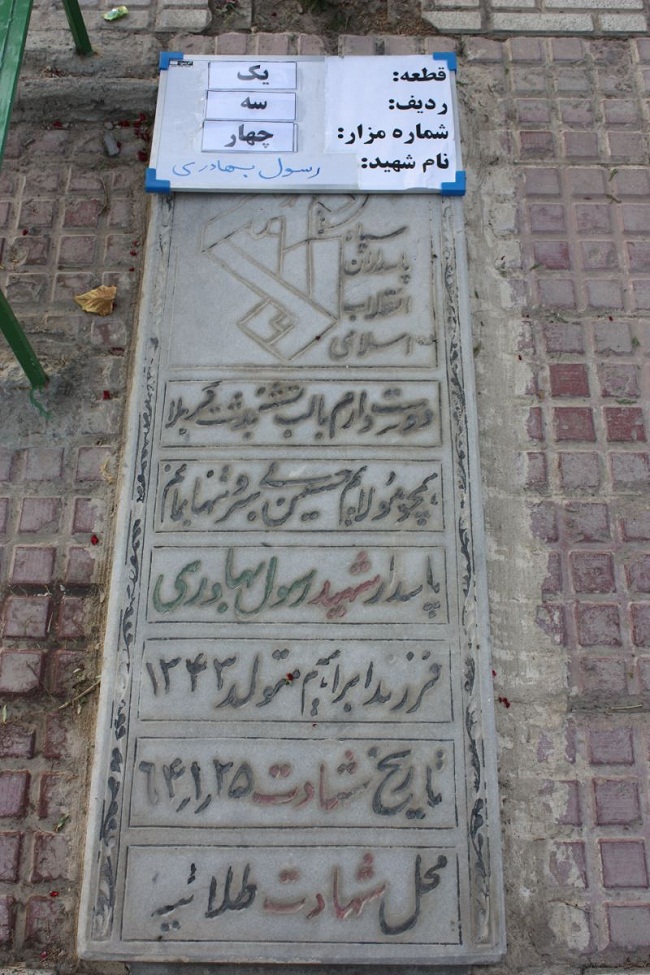 قطعه: یک
ردیف: سه
شماره مزار: چهار
نام شهید: رسول بهادری
سپاه
پاسداران
انقلاب
اسلامی
دوست دارم با لب تشنه بدشت کربلا
همچو مولایم حسین بی سر و تنها بمانم
پاسدار شهید رسول بهادری
فرزند ابراهیم متولد ۱۳۴۳
تاریخ شهادت ۶۴٫۱٫۲۵
محل شهادت طلائیه